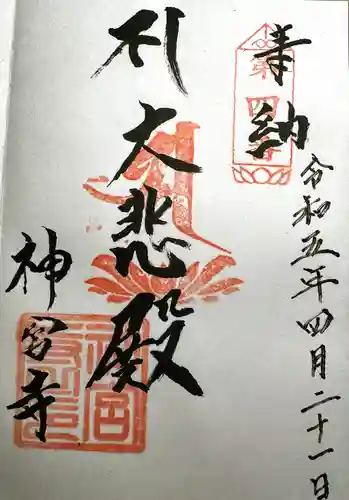 奉納
令和五年四月二十一日
大悲殿
神宮寺